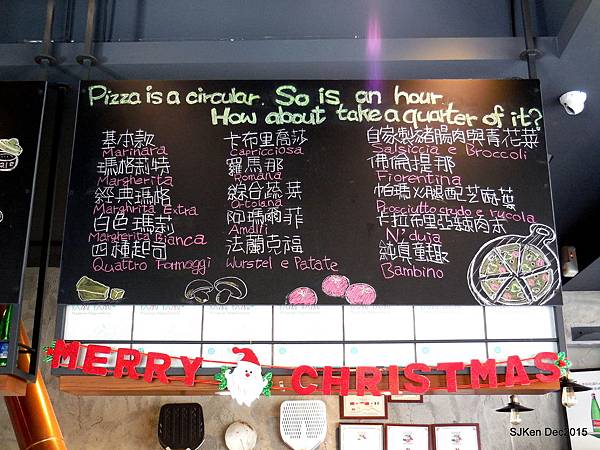 Pizza is a circular. So is an hour.
How about take a quarter of it?
基本款
Marinara
瑪格莉特
Margherita
經典瑪格
Marghrita Extra
白色瑪莉
Marghrita Bianca
四種起司
Quattro Formaggi
卡布里喬莎
Capricciosa
羅馬那
Romana
綜合蔬菜
Ortolana
阿瑪爾菲
Amalfi
法蘭克福
Wurstel e Patate
自家製豬肉腸與青花菜
Salsiccia e Broccoli
佛倫提那
Fiorentina
帕瑪火腿配芝麻葉
Prosciutto crudo e rucola
N'duja
純真童趣
Bambino
MERRY CHRISTMAS
SJKen Dec2015